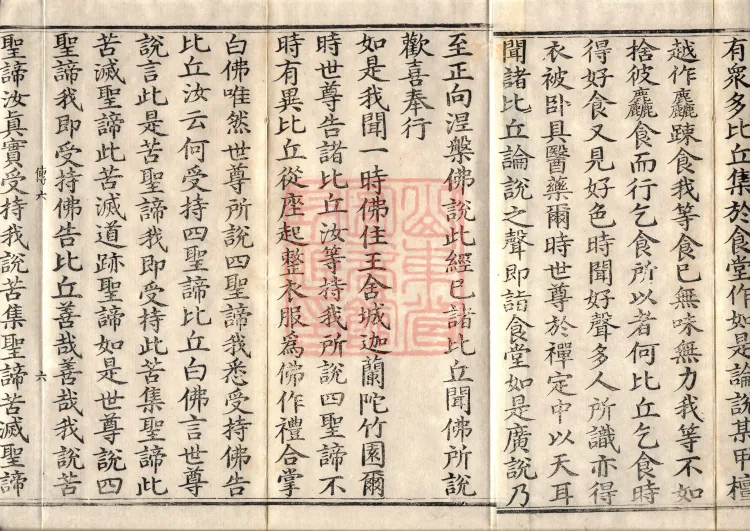 有衆多比丘集於食堂作如是論說某甲檀
越作麤踈食我等食已無味無力我等不如
捨彼麤食而行乞食所以者何比丘乞食時
得好食又見好色時聞好聲多人所識亦得
衣被卧具醫藥爾時世尊於禪定中以天耳
聞諸比丘論說之聲即詣食堂如是廣說乃
至正向涅槃佛說此經已諸比丘聞佛所說
歡喜奉行
如是我聞一時佛住王舍城迦蘭陀竹園爾
時世尊告諸比丘汝等持我所說四聖諦不
時有異比丘從座起整衣服爲佛作禮合掌
白佛唯然世尊所說四聖諦我悉受持佛告
比丘汝云何受持四聖諦比丘白佛言世尊
說言此是苦聖諦我即受持此苦集聖諦此
苦滅聖諦此苦滅道跡聖諦如是世尊說四
聖諦我即受持佛告比丘善哉善哉我說苦
傳六
六
聖諦汝眞實受持我說苦集聖諦苦滅聖諦